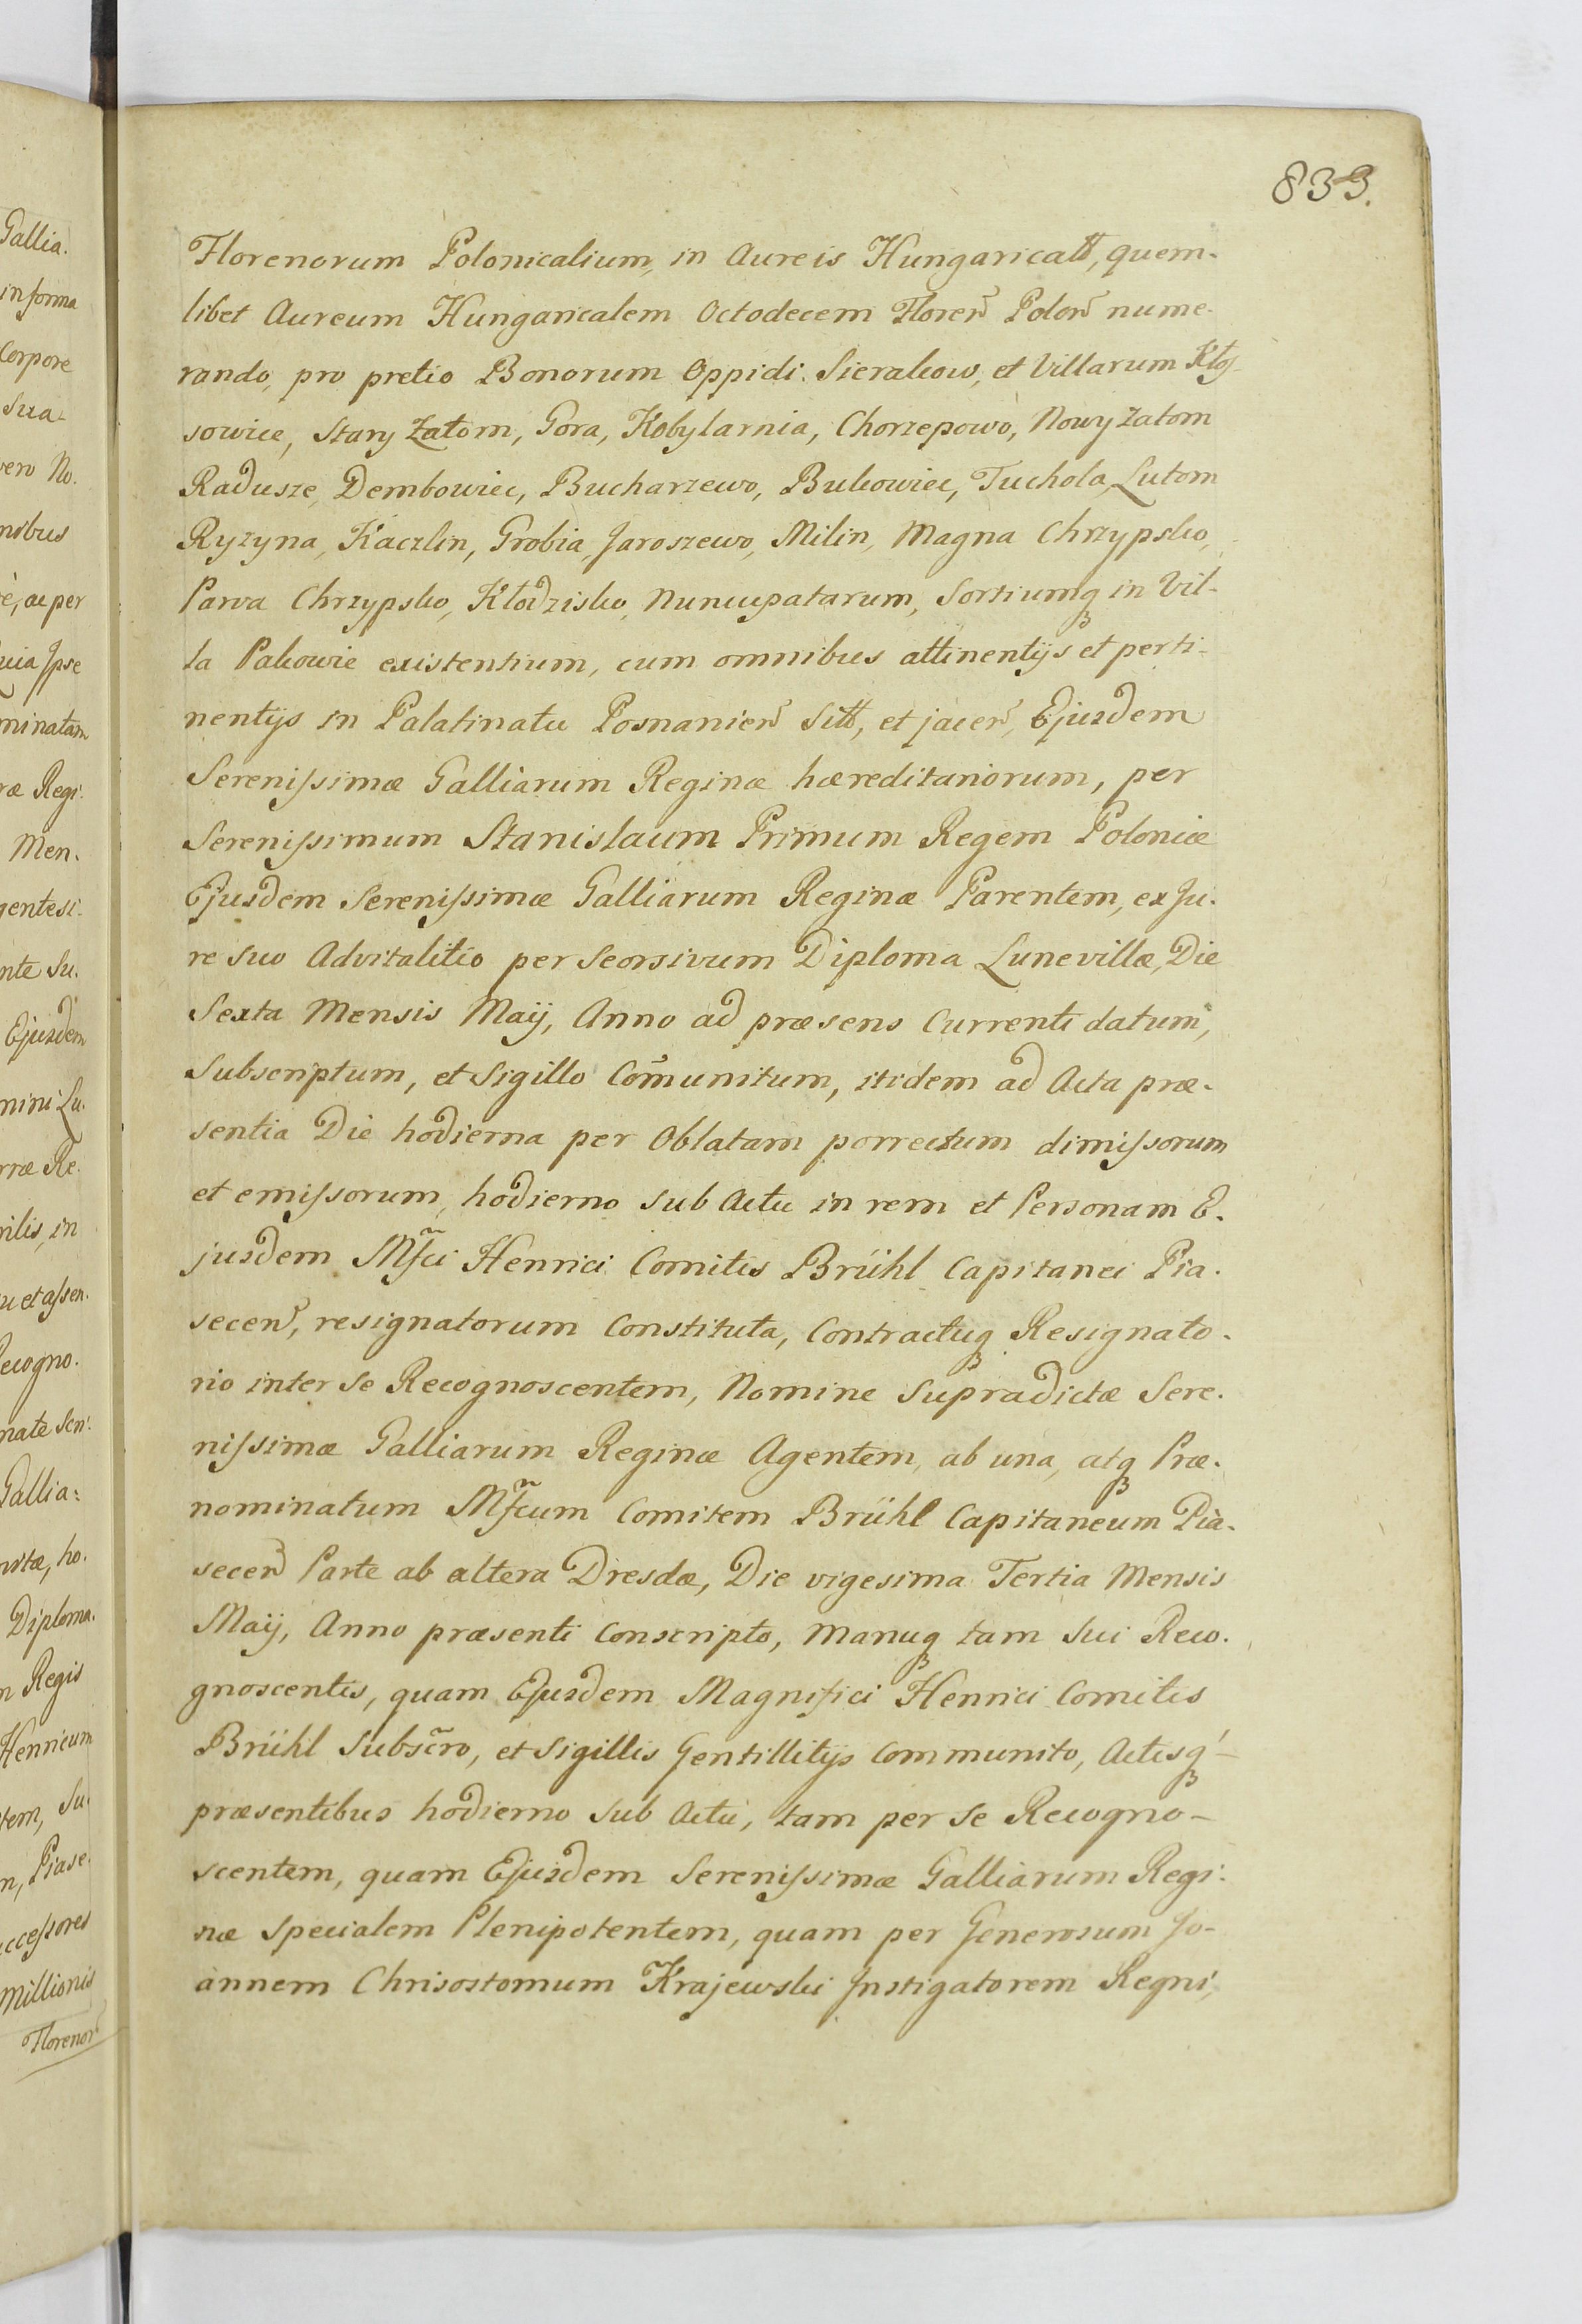 Gallia.
in forma
Corpore
Sua-
vero No.
nibus
è, ac per
Ipse
minatam
ræ Regi.
Men.
gentesi.
nte Su.
Ejusdem
mini Lu.
rræ Re.
rilis, in
u et assen.
ecogno.
nate Sen.
Gallia:
vitæ, ho.
Diploma.
n Regis
Henricum
tem, Su.
n, Piase.
ccessores
millionis
Florenor
833.
Florenorum Polonicalium, in Aureis Hungaricall, quem-
libet Aureum Hungaricalem Octodecem Floren Polon nume-
rando, pro pretio Bonorum Oppidi Sierakow, et Villarum Kłos-
sowice, Stary Zatom, Gora, Kobylarnia, Chorzepowo, Nowy Zatom
Radusze, Dembowiec, Bucharzewo, Bukowiec, Tuchola, Lutom
Ryzyna, Kaczlin, Grobia, Jaroszewo, Milin, Magna Chrzypsko,
Parva Chrzypsko, Kłodzisko, Nuncupatarum, Sortiumq in Vil-
la Pakowie existentium, cum omnibus attinentijs et perti-
nentijs in Palatinatu Posnanien Sitt, et jacen, Ejusdem
Serenissimæ Galliarum Reginæ hæreditariorum, per
Serenissimum Stanislaum Primum Regem Poloniæ
Ejusdem Serenissimæ Galliarum Reginæ Parentem, ex Ju-
re suo Advitalitio per Seorsivum Diploma Lunevillæ, Die
Sexta Mensis Maij, Anno ad præsens Currenti datum,
Subscriptum, et Sigillo Com̃unitum, itidem ad Acta præ-
sentia Die hodierna per Oblatam porrectum dimissorum
et emissorum, hodierno sub Actu in rem et Personam E-
jusdem Mf̃ci Henrici Comitis Brühl Capitanei Pia-
secen, resignatorum Constituta, Contractuq Resignato-
rio inter Se Recognoscentem, Nomine Supradictæ Sere-
nissimæ Galliarum Reginæ Agentem, ab una, atq Præ-
nominatum Mf̃cum Comitem Brühl Capitaneum Pia-
secen Parte ab altera Dresdæ, Die vigesima Tertia Mensis
Maij, Anno præsenti Conscripto, Manuq tam Sui Reco-
gnoscentis, quam Ejusdem Magnifici Henrici Comitis
Brühl Subscr̃o, et Sigillis Gentillitijs Communito, Actisq
præsentibus hodierno Sub Actu, tam per Se Recogno-
scentem, quam Ejusdem Serenissimæ Galliarum Regi-
næ Specialem Plenipotentem, quam per Generosum Jo-
annem Chrisostomum Krajewski Instigatorem Regni,